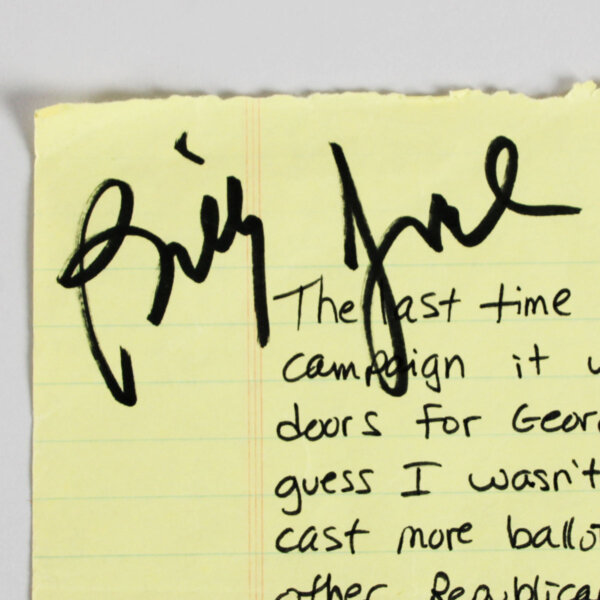 Billy Joel
The last time
campaign it
doors for Geor
guess I wasn't
cast more ballo
other Republica